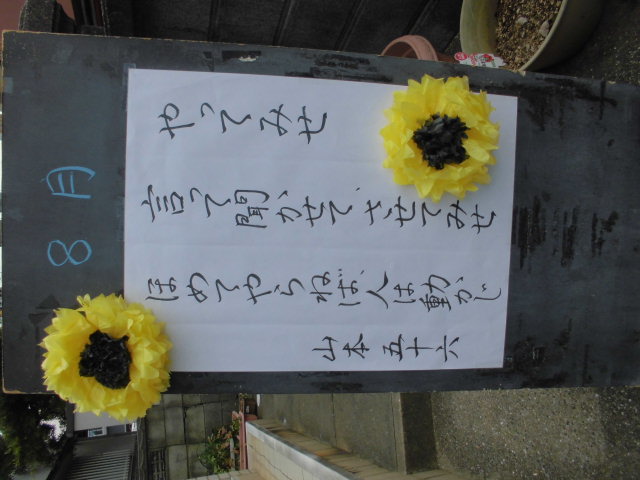 8月
やってみせ
言って聞かせて、させてみせ
ほめてやらねば、人は動かじ
山本五十六